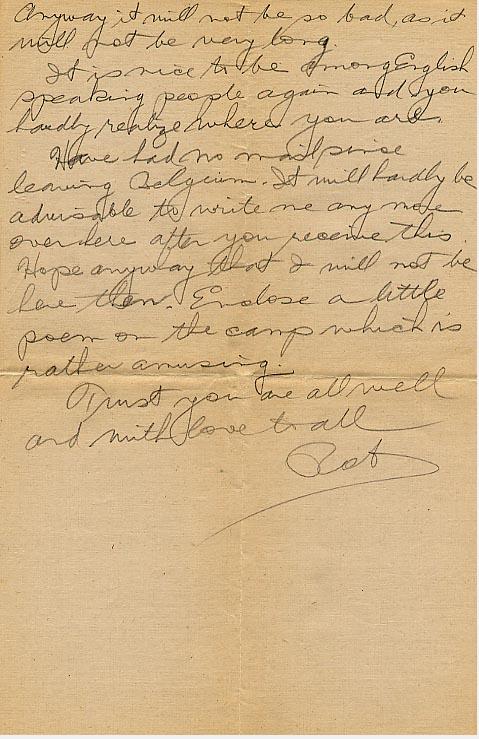 Anyway it will not be so bad, as it
will not be very long.
It is nice to be among English
speaking people again and you
hardly realize where you are.
Have had no mail since
leaving Belgium. It will hardly be
advisable to write me any more
over here after you receive this.
Hope anyway that I will not be
here then. Enclose a little
poem on the camp which is
rather amusing.
Trust you are all well
and with love to all